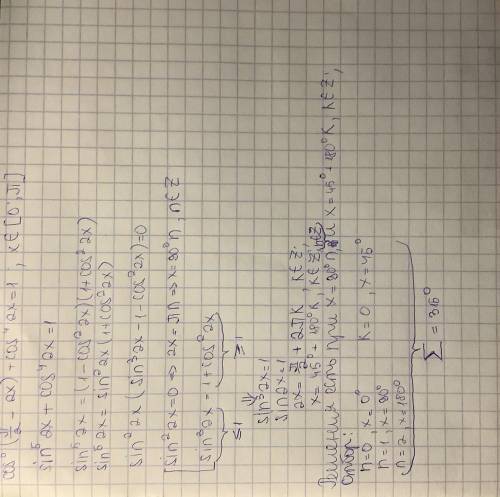 cos⁵(π/2 − 2x) + cos⁴ 2x = 1 , x∈[0;π]
sin⁵ 2x + cos⁴ 2x = 1
sin⁵ 2x = (1−cos² 2x)(1+cos² 2x)
sin⁵ 2x = sin² 2x (1+cos² 2x)
sin² 2x (sin³ 2x − 1 − cos² 2x) = 0
[ sin² 2x = 0 ⇔ 2x = πn ⇒ x = 90°n, n∈Z
[ sin³ 2x = 1 + cos² 2x
≤1 ≥1
⇓
sin³ 2x = 1
sin 2x = 1
2x = π/2 + 2πk, k∈Z;
x = 45° + 180°k, k∈Z;
Решения есть при x = 90°n, n∈Z и x = 45° + 180°k, k∈Z;
Отбор:
n=0, x=0° k=0, x=45°
n=1, x=90°
n=2, x=180°
∑ = 315°